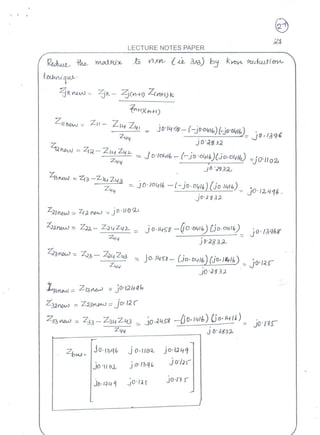 27
21
LECTURE NOTES PAPER
Reduce the matrix to n×n (ie 3×3) by kron reduction
technique
Zjk new = Zjk - Zj(n+1) Z(n+1)k
Z(n+1)(n+1)
Z11 new = Z11 - Z14 Z41 = j0.1458 - (-j0.0416)(-j0.0416) = j0.1396
Z44 j0.2832
Z12 new = Z12 - Z14 Z42 = j0.1042 - (-j0.0416)(j0.0416) = j0.1102
Z44 j0.2832
Z13 new = Z13 - Z14 Z43 = j0.1046 - (-j0.0416)(j0.1416) = j0.12496
Z44 j0.2832
Z21 new = Z12 new = j0.1102
Z22 new = Z22 - Z24 Z42 = j0.1458 - (j0.0416)(j0.0416) = j0.1396
Z44 j0.2832
Z23 new = Z23 - Z24 Z43 = j0.1458 - (j0.0416)(j0.1416) = j0.125
Z44 j0.2832
Z31 new = Z13 new = j0.12496
Z32 new = Z23 new = j0.125
Z33 new = Z33 - Z34 Z43 = j0.2458 - (j0.1416)(j0.1416) = j0.175
Z44 j0.2832
j0.1396 j0.1102 j0.1249
Zbus = j0.1102 j0.1396 j0.125
j0.1249 j0.125 j0.175